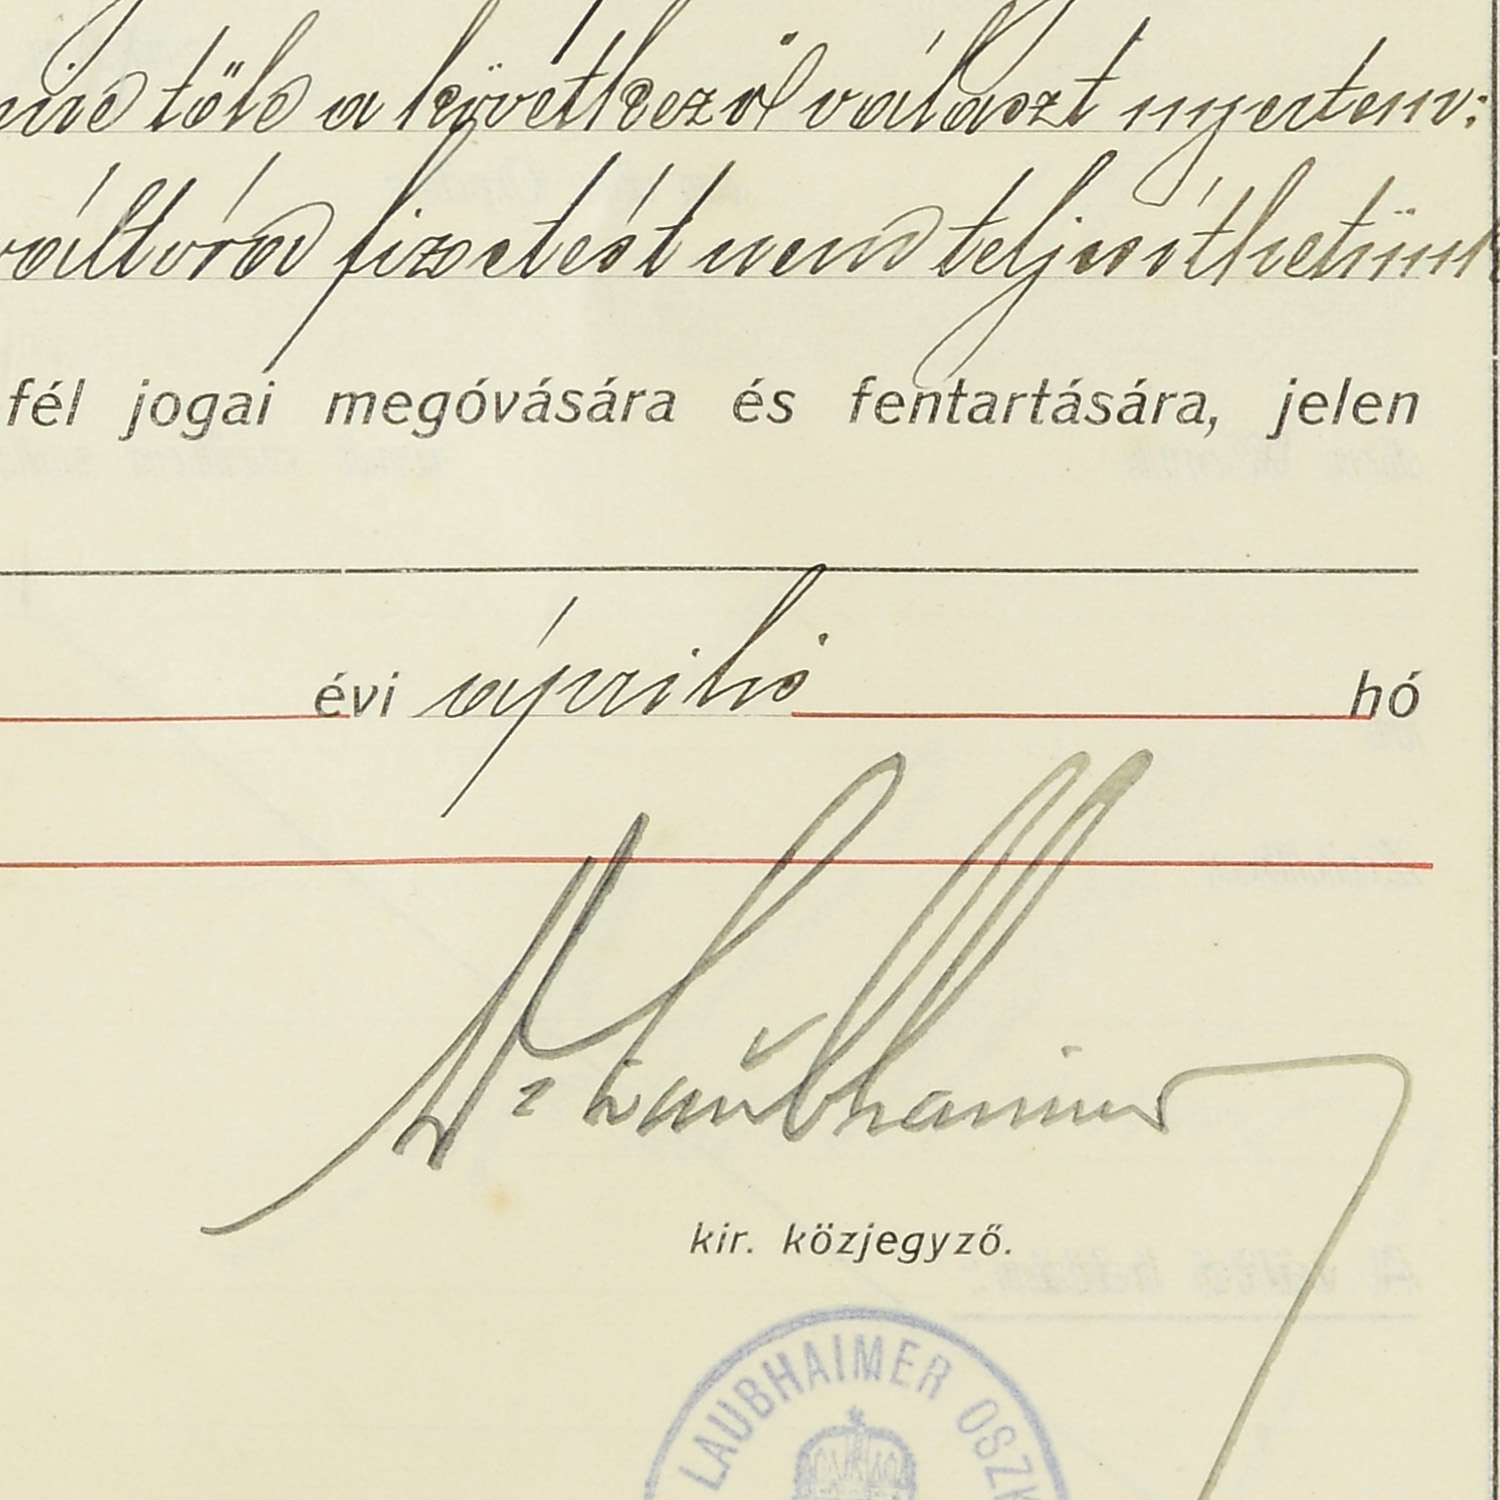 tőle a következő választ nyertem:
váltóra fizetést nem teljesíthetünk
fél jogai megóvására és fentartására, jelen
évi április hó
Dr Laubhaimer
kir. közjegyző.
LAUBHAIMER OSZK